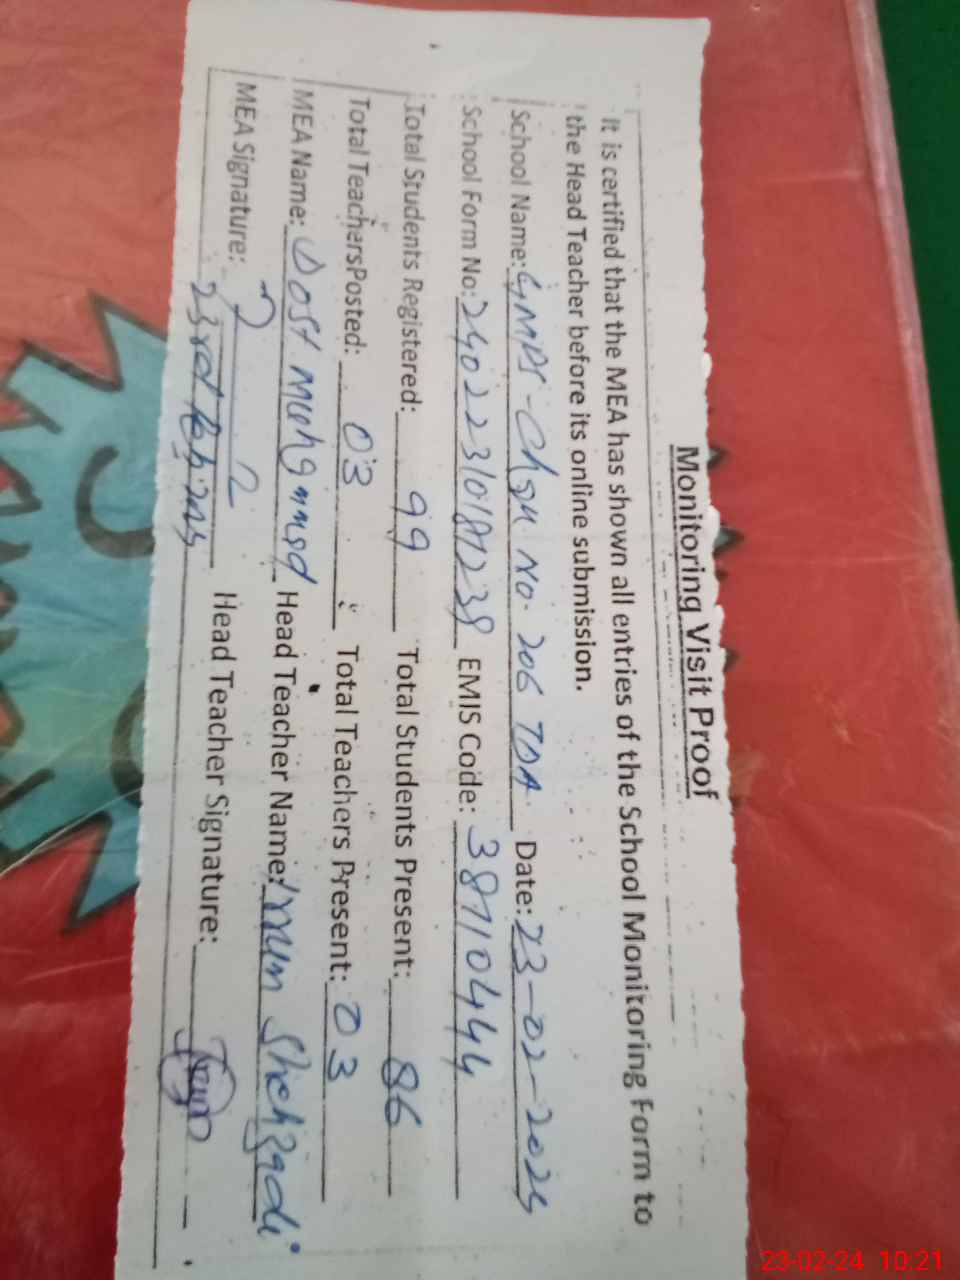 Monitoring Visit Proof
It is certified that the MEA has shown all entries of the School Monitoring Form to
the Head Teacher before its online submission.
School Name: GMPS - Chak No. 206 TDA Date: 23-02-2024
School Form No: 24022310181238 EMIS Code: 38710444
Total Students Registered: 99 Total Students Present: 86
Total Teachers Posted: 03 Total Teachers Present: 03
MEA Name: Dost Muhammad Head Teacher Name: Shehzadi
MEA Signature: Head Teacher Signature:
23rd Feb, 2024
23-02-24 10:21